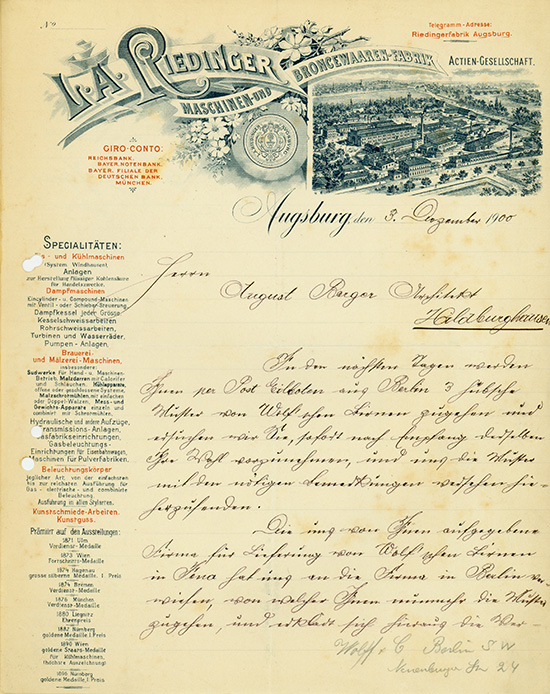 No
Telegramm-Adresse:
Riedingerfabrik Augsburg.
L.A. RIEDINGER
MASCHINEN- UND
BRONCEWAAREN-FABRIK
ACTIEN-GESELLSCHAFT.
GIRO-CONTO:
REICHSBANK.
BAYER. NOTENBANK.
BAYER. FILIALE DER
DEUTSCHEN BANK,
MÜNCHEN.
Augsburg den 3. Dezember 1900
Herrn
August Berger Architekt
Hildburghausen
In den nächsten Tagen werden
Ihnen per Post Eilboten aus Berlin 3 hübsche
Muster von Wolf'schen Birnen zugehen und
ersuchen wir Sie, sofort nach Empfang derselben
Ihre Wahl vorzunehmen, und uns die Muster
mit den nötigen Bemerkungen versehen, hie-
herzusenden.
Die uns von Ihnen aufgegebene
Firma für Lieferung von Wolf'schen Birnen
in Jena hat uns an die Firma in Berlin ver-
wiesen, von welcher Ihnen nunmehr die Muster
zugehen, und erklärt sich hieraus die Ver-
Wolff & C Berlin S W
Str 24
SPECIALITÄTEN:
- und Kühlmaschinen
(System Windhausen).
Anlagen
zur Herstellung flüssiger Kohlensäure
für Handelszwecke.
Dampfmaschinen
Eincylinder- u. Compound-Maschinen
mit Ventil- oder Schieber-Steuerung.
Dampfkessel jeder Grösse
Kesselschweissarbeiten
Rohrschweissarbeiten,
Turbinen und Wasserräder,
Pumpen - Anlagen.
Brauerei-
und Mälzerei-Maschinen,
insbesondere:
Sudwerke für Hand- u. Maschinen-
Betrieb, Malzdarren mit Calorifer
und Schlauchen, Kühlapparate,
offene oder geschlossene Systeme,
Malzschrotmühlen, mit einfachen
oder Doppel-Walzen, Mess- und
Gewichts-Apparate einzeln und
combinirt mit Schrotmühlen.
Hydraulische und andere Aufzüge,
Transmissions-Anlagen,
Gasfabrikseinrichtungen,
Gasbeleuchtungs-
Einrichtungen für Eisenbahnwagen,
Maschinen für Pulverfabriken.
Beleuchtungskörper
jeglicher Art, von der einfachsten
bis zur reichsten Ausführung für
Gas - electrische - und combinirte
Beleuchtung.
Ausführung in allen Stylarten.
Kunstschmiede-Arbeiten.
Kunstguss.
Prämiirt auf den Ausstellungen:
1871 Ulm
Verdienst-Medaille
1873 Wien
Fortschritts-Medaille
1874 Hagenau
grosse silberne Medaille, I. Preis
1874 Bremen
Verdienst-Medaille
1876 München
Verdienst-Medaille
1880 Liegnitz
Ehrenpreis
1882 Nürnberg
goldene Medaille, I. Preis
1890 Wien
goldene Staats-Medaille
für Kühlmaschinen,
(höchste Auszeichnung)
1896 Nürnberg
goldene Medaille, I. Preis